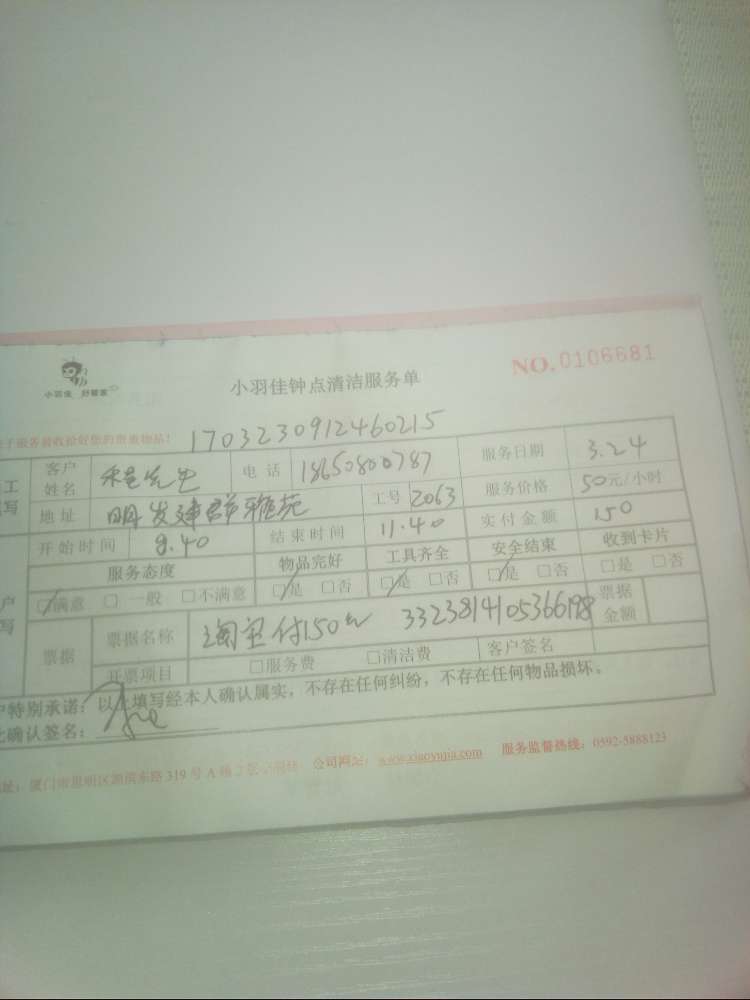 NO.0106681
小羽佳 好管家
小羽佳钟点清洁服务单
1703230912460215
客户姓名 先生 电话 18650800787 服务日期 3.24
地址 明发建群雅苑 工号 2063 服务价格 50元/小时
开始时间 9.40 结束时间 11.40 实付金额 150
服务态度 物品完好 工具齐全 安全结束 收到卡片
☑满意 □一般 □不满意 ☑是 □否 ☑是 □否 ☑是 □否 □是 □否
票据 票据名称 淘宝付150元 3323814105366198 票据金额
开票项目 □服务费 □清洁费 客户签名
特别承诺：以上填写经本人确认属实，不存在任何纠纷，不存在任何物品损坏。
确认签名：
厦门市思明区 东路319号A 公司网址：www.xiaoyujia.com 服务监督热线：0592-5888123